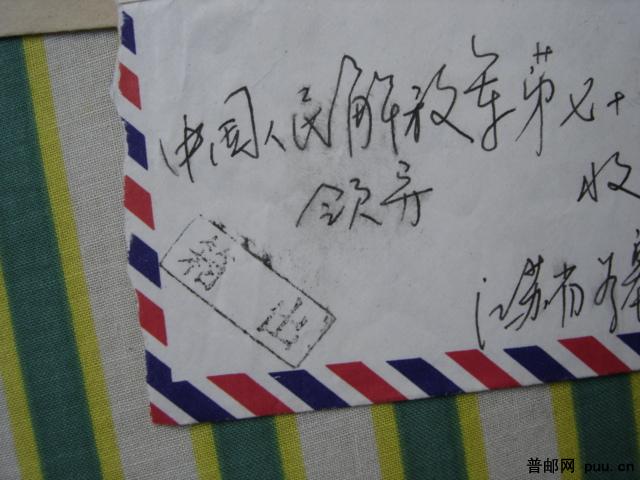 中国人民解放军第七十
领导
收
箱出
江苏省
普邮网 puu.cn